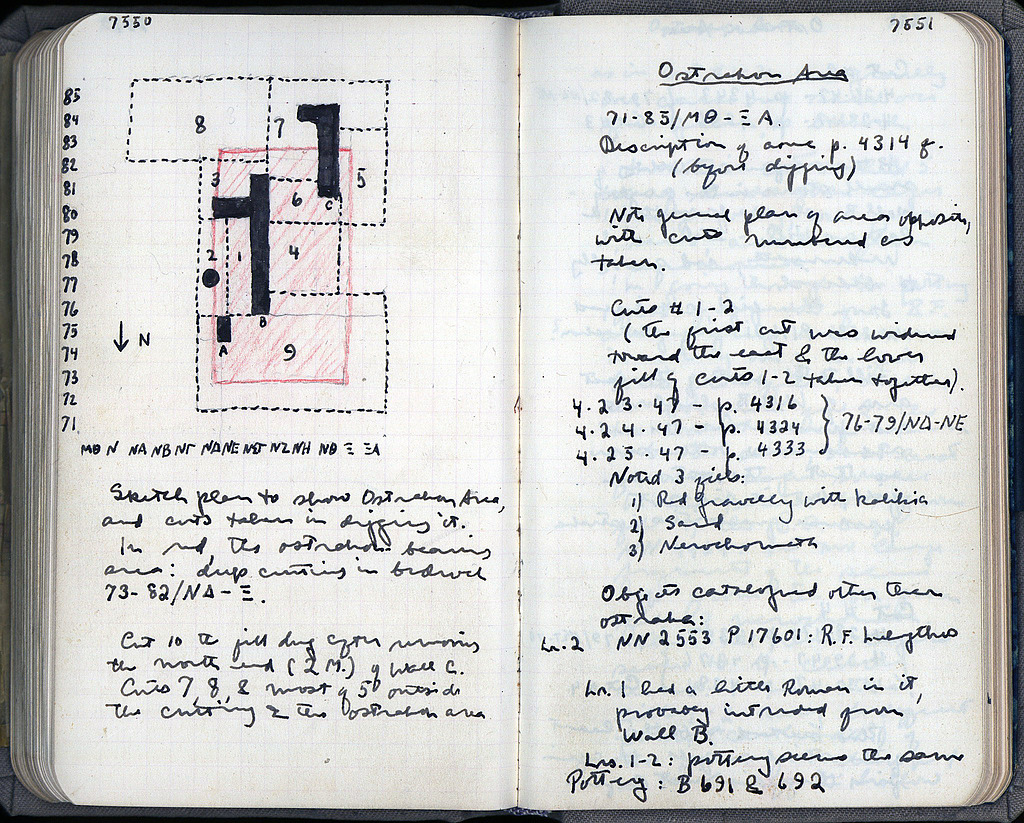 7550
85
84
83
82
81
80
79
78
77
76
75
74
73
72
71
8
7
3
5
6
C
2
1
4
B
A
9
N
ΜΘ Ν ΝΑ ΝΒ ΝΓ ΝΔ ΝΕ ΝΣΤ ΝΖ ΝΗ ΝΘ Ξ ΞΑ
Sketch plan to show Ostrakon Area,
and cuts taken in digging it.
In red, the ostrakon bearing
area: deep cutting in bedrock
73-82/ΝΔ-Ξ.
Cut 10 the fill dug after removing
the north end (2 M.) of Wall C.
Cuts 7, 8, & most of 5 outside
the cutting & the ostrakon area
7551
Ostrakon Area
71-85/ΜΘ-ΞΑ.
Description of area p. 4314 f.
(before digging)
Note general plan of area opposite,
with cuts numbered as
taken.
Cuts # 1-2
(The first cut was widened
toward the east & the lower
fill of cuts 1-2 taken together).
4.23.47 - p. 4316
4.24.47 - p. 4324 } 76-79/ΝΔ-ΝΕ
4.25.47 - p. 4333
Noted 3 fills:
1) Red gravelly with kalikia
2) Sand
3) Nerochomata
Objects catalogued other than
ostraka:
Lr. 2 NN 2553 P 17601: R.F. Lekythos
Lr. 1 had a little Roman in it,
probably intruded from
Wall B.
Lrs. 1-2: pottery seems the same
Pottery: B 691 & 692